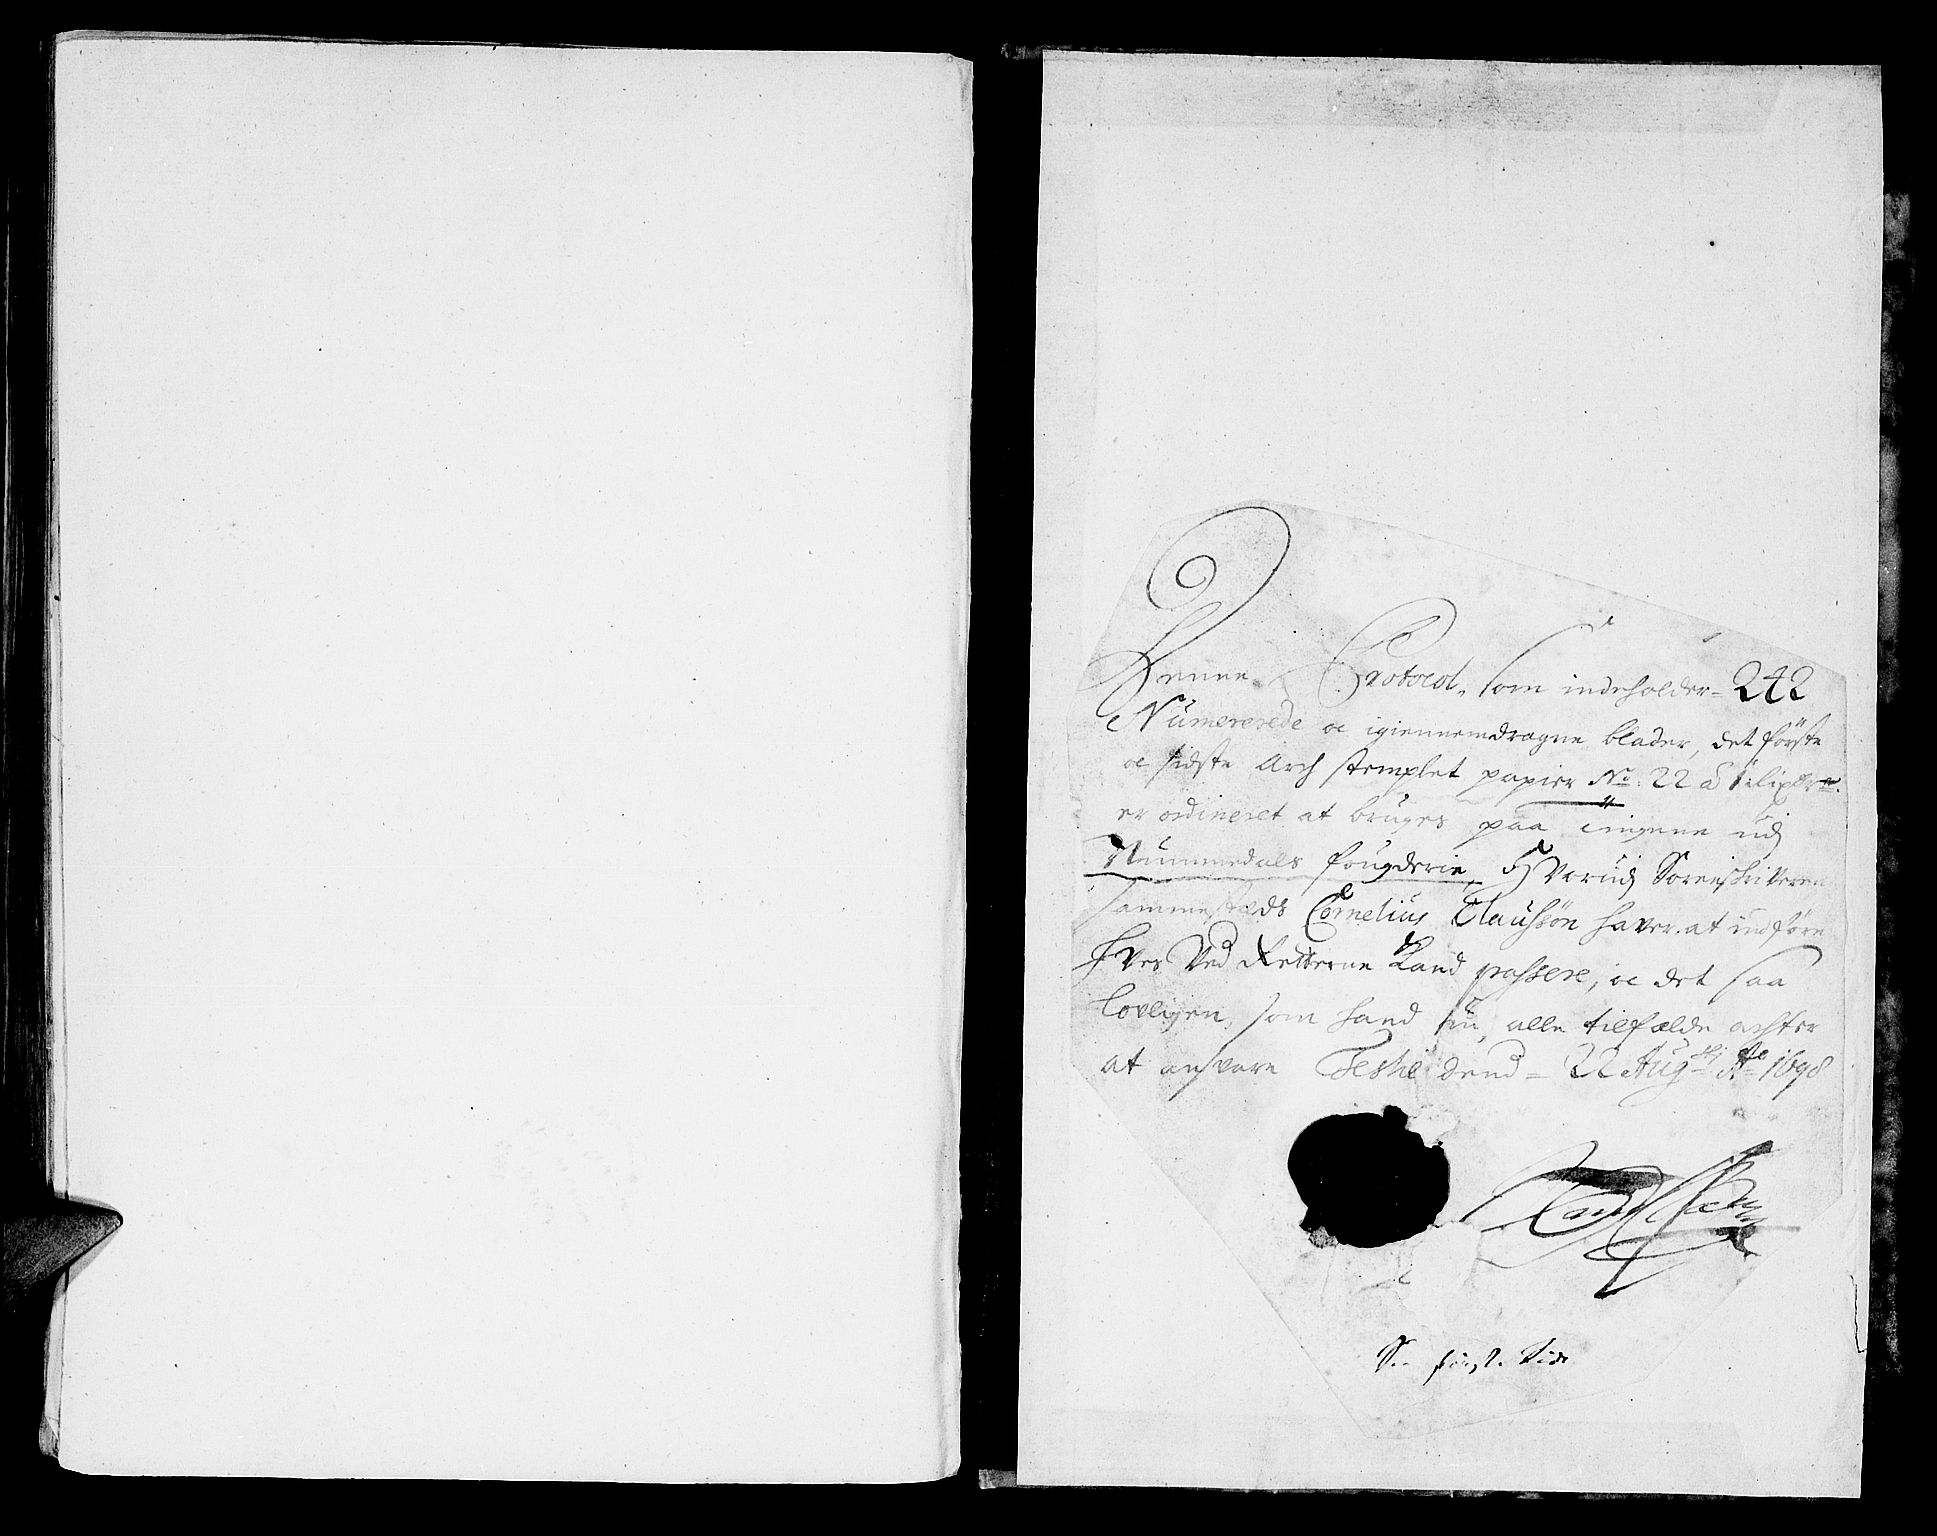 Denne Protocol, som indeholder 242
Numererede oc igiennemdragne blader, det förste
oc sidste Arch stemplet papier No. 22 à
er ordineret at bruges paa tingene udj
Nummedals fougderie, Hvorudj Sorenschriveren
sammesteds Cornelius Claussøn haver at indføre
hves Ved Retterne Kand passere, oc det saa
lovligen, som hand i alle tilfælde achter
at ansvare dend 22 Augti Ao 1698
första Side